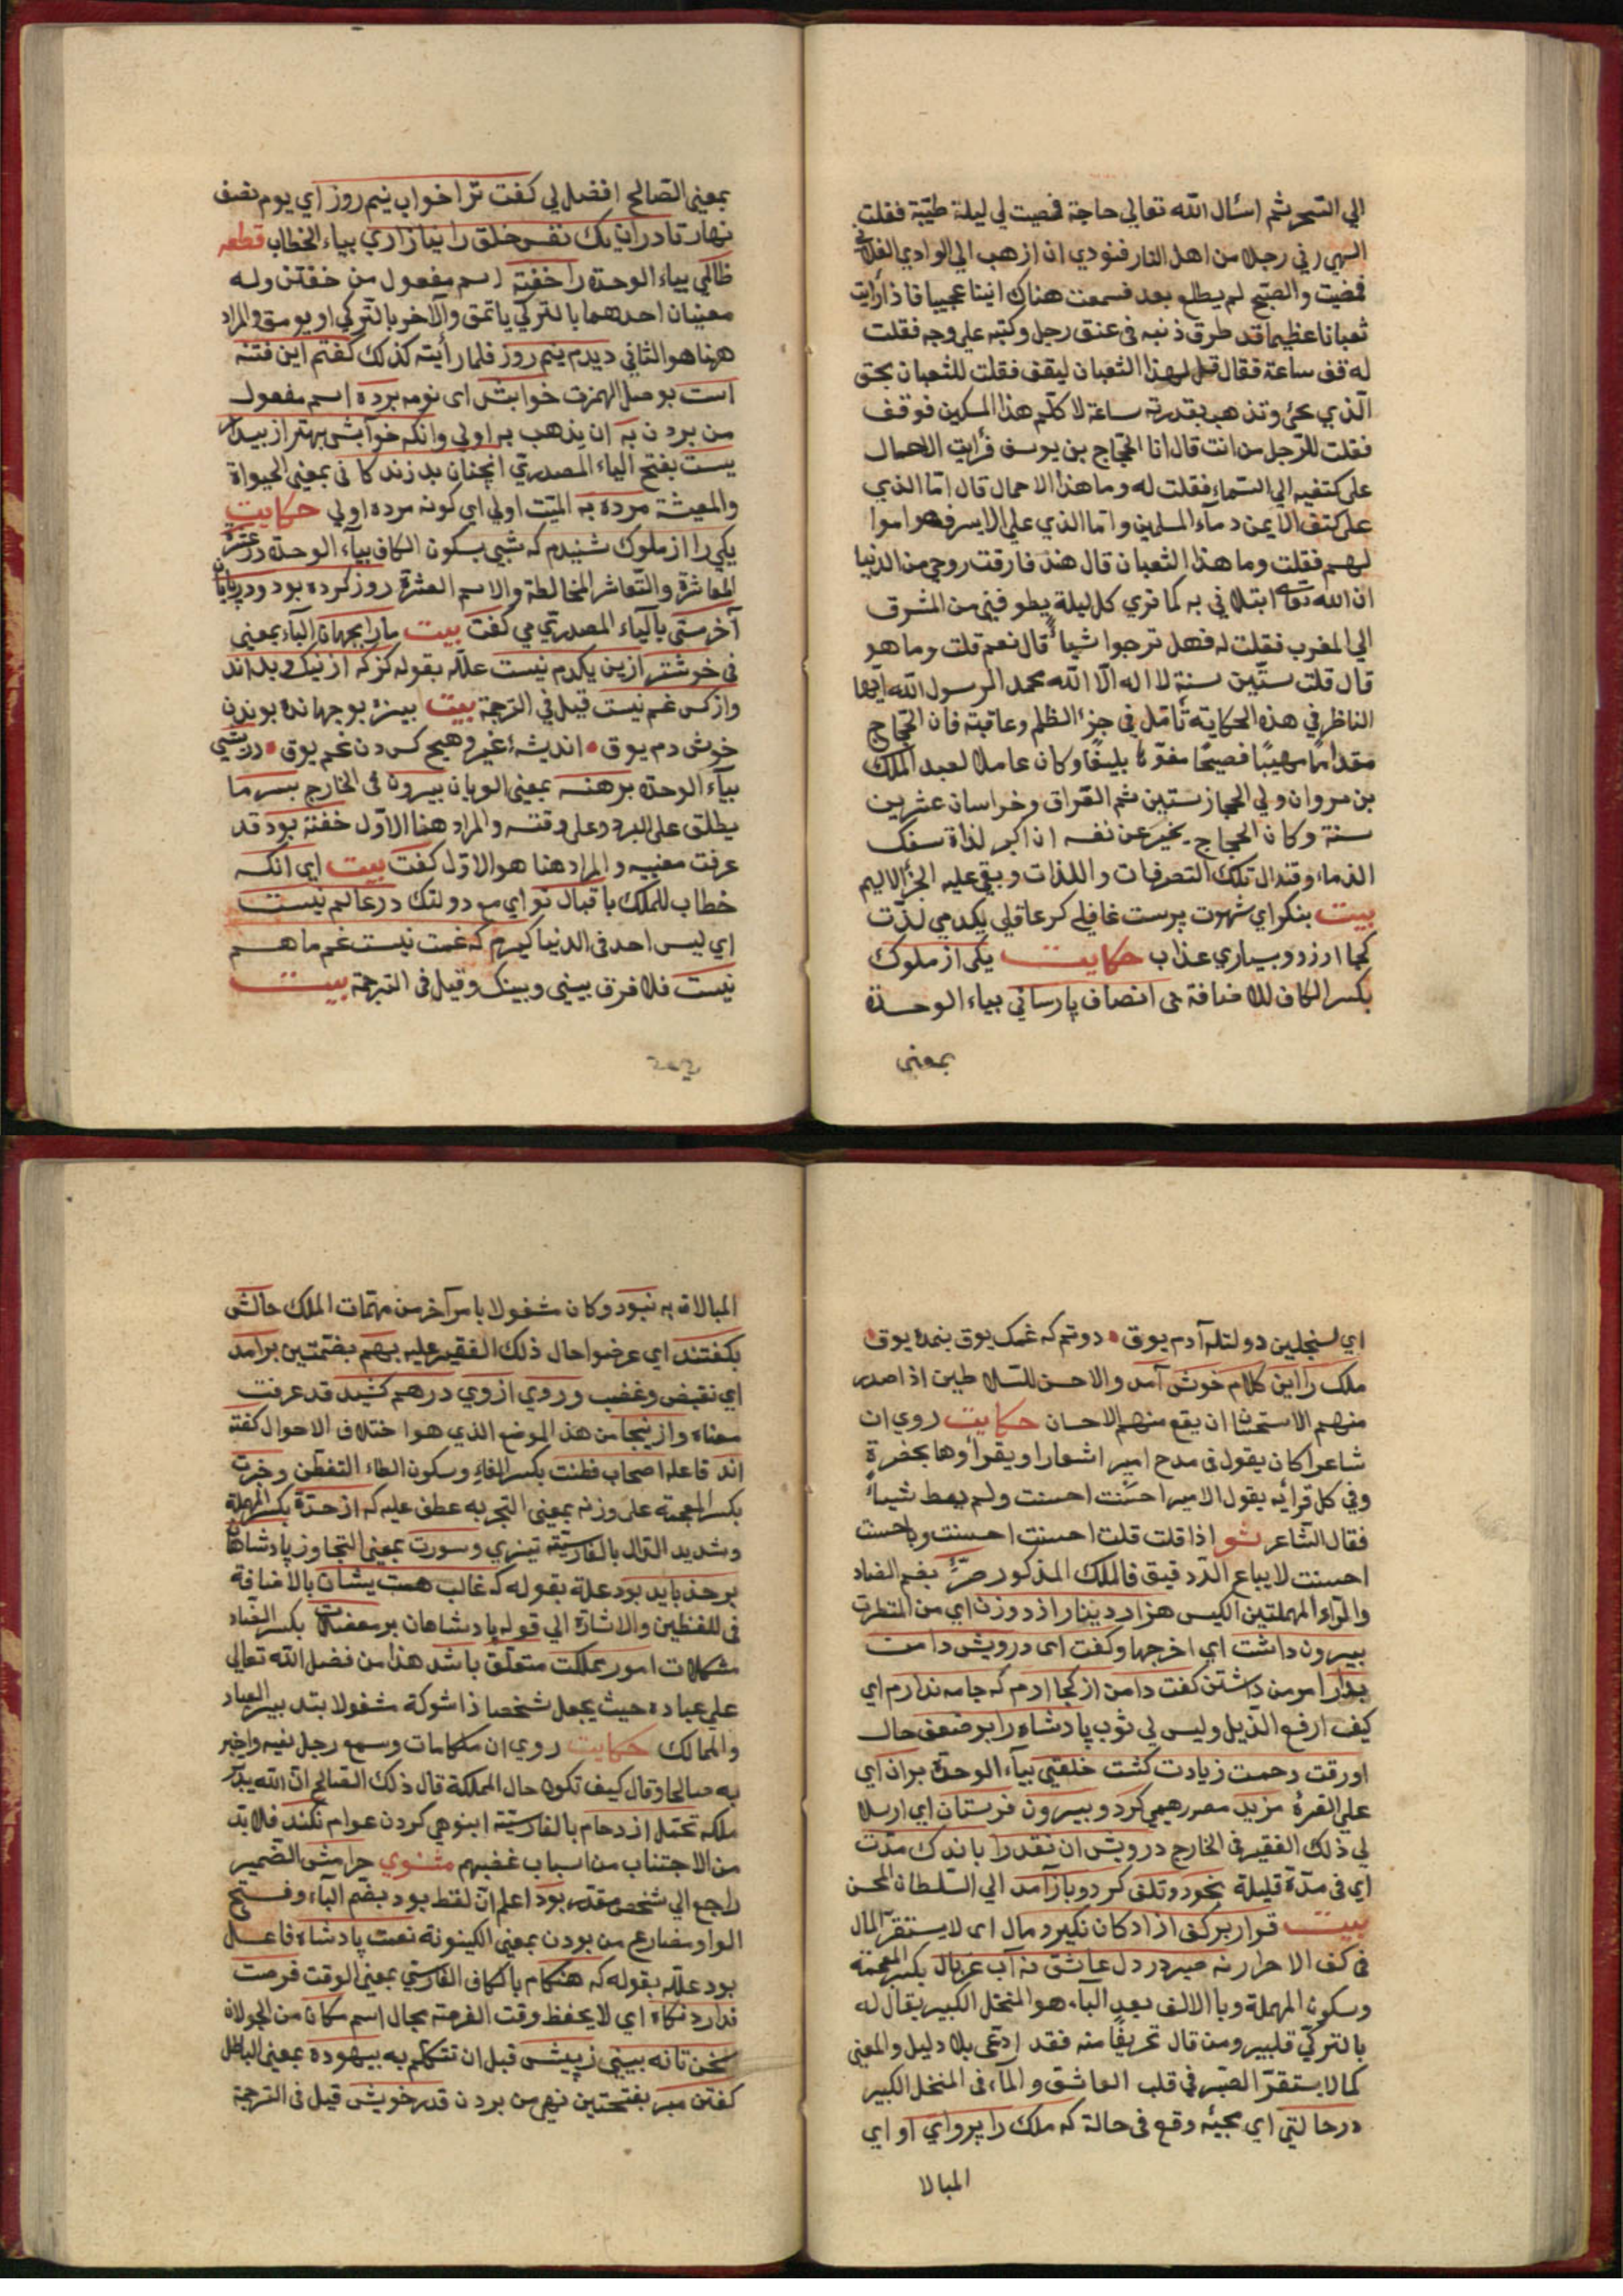 الي السحر ثم اسئال الله تعالي حاجة فمضيت لي ليلة طيبة فقلت
الهي ارني رجلا من اهل النار فنودي ان اذهب الي الوادي الفلاني
فمضيت والصبح لم يطلع بعد فسمعت هناك انينا عجيبا فاذا رايت
ثعبانا عظيما قد طرق ذنبه فى عنق رجل وكتبه علي وجه فقلت
له قف ساعة فقال قل لهذا الثعبان ليقف فقلت للثعبان بحق
الذي تجئ وتذهب بقدرته ساعة لاكلم هذا المسكين فوقف
فقلت للرجل من انت قال انا الحجاج بن يوسف فرأيت الاحمال
على كتفيه الي السماء فقلت له وما هذا الاحمال قال اما الذي
على كتف الايمن دماء المسلمين واما الذي علي الايسر فهو اموا
لهم فقلت وما هذا الثعبان قال هذ فارقت روحي من الدنيا
ان الله تعالى ابتلاني به كما تري كل ليلة يطوفني من المشرق
الي المغرب فقلت له فهل ترجوا شيأ قال نعم قلت وما هو
قال قلت ستين سنة لا اله الا الله محمد الرسول الله ايها
الناظر في هذه الحكاية تأمل في جزء الظلم وعاقبة فان الحجاج
مقداما مهيبا فصيحا مفوها بليغا وكان عاملا لعبد الملك
بن مروان ولي الحجاز سنتين ثم العراق وخراسان عشرين
سنة وكان الحجاج يخبر عن نفسه ان اكبر لذاة سفك
الدماء وقد زال تلك التصرفات واللذات وبقي عليه الجزأ الاليم
بيت بنكر اي شهوت پرست غافلے كر عاقلي يكدمي لذت
كجا ارزد وبسياري عذاب حكايت يكى از ملوك
بكسر الكاف للاضافة بى انصاف پارسائي بياء الوحدة
بمعنى
بمعنى الصالح افضل لي كفت ترا خواب نيم روز اي يوم نصف
نهار تا در ان يك نفس خلق را نيازاري بياء الخطاب قطعه
ظالمي بياء الوحدة را خفتة اسم مفعول من خفتن وله
معنيان احدهما بالتركي ياتمق والآخر بالتركي اويومق والمراد
ههنا هو الثاني ديدم نيم روز فلما رأيته كذلك كفتم اين فتنه
است بوصل الهمزة خوابش اى نومه برده اسم مفعول
من بردن به ان يذهب به اولي وانكه خوابش بهتر از بيدار
يست بفتح الياء المصدري آنچنان بد زندكانى بمعنى الحيواة
والمعيشة مرده به الميت اولي اي كونه مرده اولي حكايت
يكي را از ملوك شنيدم كه شبي بسكون الكاف بياء الوحدة در عشرة
المعاشرة والتعاشر المخالطة والاسم العشرة روز كرده بود ودر پايان
آخر مستى بالياء المصدري مي كفت بيت مارا بجهان الباء بمعنى
فى خوشتر ازين يكدم نيست علله بقوله كز كه از نيك وبد اند
واز كس غم نيست قيل في الترجمة بيت بيزه بو جهانده بوندن
خوش دم يوق • انديشۀ غير وهيچ كسدن غم يوق • درويشى
بياء الوحدة برهنه بمعنى العريان بيرون فى الخارج بسرما
يطلق على البرد وعلى وقته والمراد هنا الاول خفتة بود قد
عرفت معنييه والمراد هنا هو الاول كفت بيت اي انكه
خطاب للملك باقبال تو اي مع دولتك در عالم نيست
اي ليس احد فى الدنيا كيرم كه غمت نيست غم ما هم
نيست فلا فرق بينى وبينك وقيل فى الترجمة بيت
اي سنجلين دولتله آدم يوق • دوتم كه غمك يوق بنمده يوق •
ملك را اين كلام خوش آمد والاحسن للسلاطين اذا صدر
منهم الاستحسان ان يقع منهم الاحسان حكايت روي ان
شاعرا كان يقول فى مدح امير اشعارا ويقرأوها بحضرة
وفي كل قرأيه يقول الامير احسنت احسنت ولم يعط شيأ
فقال الشاعر شعر اذا قلت قلت احسنت احسنت وباحسنت
احسنت لا يباع الدد قيق فالملك المذكور صره بضم الصاد
والراء المهملتين الكيس هزار دينار از روزن اي من المنظرة
بيرون داشت اي اخرجها وكفت اى درويش دامن
بدار امر من داشتن كفت دامن از كجا ارم كه جامه ندارم اي
كيف ارفع الذيل وليس لي ثوب پادشاه را بر ضعف حال
او رقت رحمت زيادت كشت خلعتي بياء الوحدة بران اي
على الصرة مزيد مصر رهيمي كرد وبيرون فرستان اي ارسلا
لي ذلك الفقير فى الخارج درويش ان نقد را باندك مدت
اي فى مدة قليلة بخورد وتلف كرد وباز آمد الي السلطان المحسن
بيت قرار بر كف ازادكان نكيرد مال اى لا يستقر المال
فى كف الاحرار نه صبر در دل عاشق نه آب غربال بكسر المعجمة
وسكون المهملة وبا الالف بعد الباء هو المنخل الكبير يقال له
بالتركي قلبير ومن قال تحريفا منه فقد ادعى بلا دليل والمعنى
كما لا يستقر الصبر في قلب العاشق والماء فى المنخل الكبير
درحالتي اي مجيئه وقع فى حالة كه ملك را پرواي او اي
المبالا
المبالاة به نبود وكان مشغولا بامر آخر من مهمات الملك حالش
بكفتند اي عرضوا حال ذلك الفقير عليه بهم بضمتين برامد
اي تقبض وغضب وروي ازوي درهم كشيد قد عرفت
معناه وازينجا من هذ الموضع الذي هو اختلاف الاحوال كفته
اند فاعله اصحاب فطنت بكسر الفاء وسكون الطاء التفطن وخبرت
بكسر المعجمة على وزنه بمعنى التجربه عطف عليه كه از حدة بكسر المهملة
وشديد الدال بالفارسية تيزي وسورت بمعنى التجاوز پادشاهان
بر حذر بايد بود علة بقوله كه غالب همت يشان بالاضافة
فى للفظين والاشارة الي قوله پادشاهان بر معضلات بكسر الضاد
مشكلات امور مملكت متعلق باشد هذا من فضل الله تعالى
على عباده حيث يجعل شخصا ذا شوكة مشغولا بتدبير العباد
والممالك حكايت روي ان ملكا مات وسمع رجل نعيه واخبر
به صالحا وقال كيف تكون حال المملكة قال ذلك الصالح ان الله يدبر
ملكه تحمل ازدحام بالفارسية انبوهي كردن عوام نكند فلا بد
من الاجتناب من اسباب غضبهم مثنوي حرامش الضمير
راجع الي شخص مقدر بود اعلم ان لفظ بود بضم الباء وفتح
الواو مضارع من بودن بمعنى الكينونة نعمت پادشاه فاعل
بود علله بقوله كه هنكام بالكاف الفارسي بمعنى الوقت فرصت
ندارد نكاه اي لا يحفظ وقت الفرصة مجال اسم مكان من الجولان
سخن تا نه بيني زپيش قبل ان تتكلم به بيهوده بمعنى الباطل
كفتن مبر بفتحتين نهى من بردن قدر خويش قيل فى الترجمة